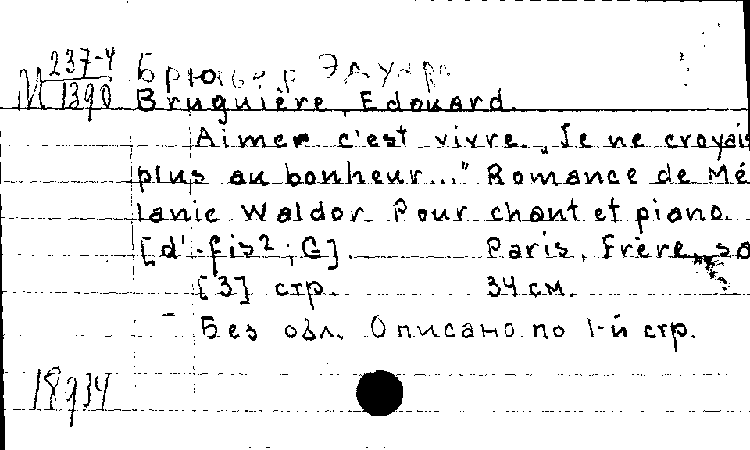 237-4
М 1390
Брюгьер, Эдуард
Bruguière, Edouard.
Aimer c'est vivre. „Je ne croyais
plus au bonheur..." Romance de Mé
lanie Waldor. Pour chant et piano.
[d'-fis²; G]. Paris, Frère, so
[3] стр. 34 см.
Без обл. Описано по 1-й стр.